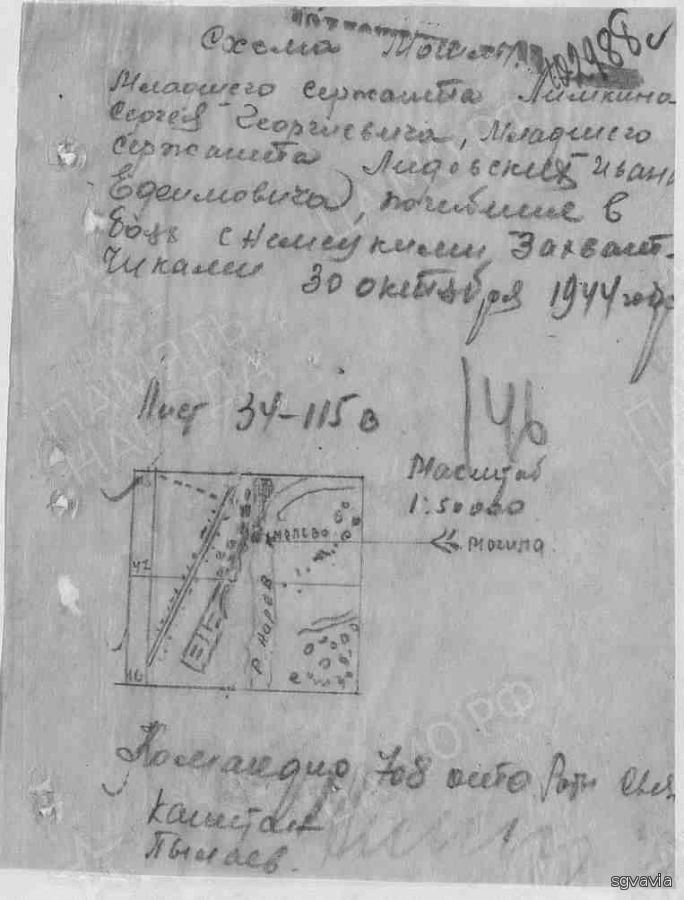 Схема Могилы
102388
Младшего сержанта Лимкина
Сергея Георгиевича, Младшего
Сержанта Лидовских Ивана
Ефимовича, погибшие в
бою с немецкими Захват-
чиками 30 октября 1944 года
Лист 34-115 в
146
Масштаб
1:50000
могила
42
р. Нарев
Командир 708 роты
Капитан
ПАМЯТЬ
НАРОДА
sgvavia